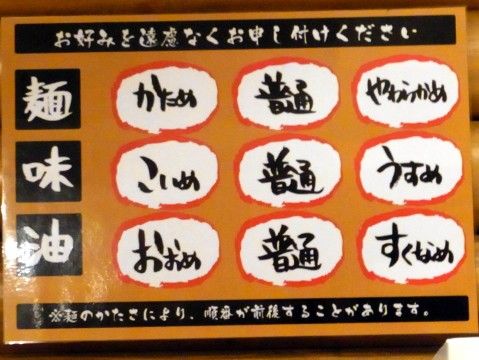 お好みを遠慮なくお申し付けください
麺 かため 普通 やわらかめ
味 こいめ 普通 うすめ
油 おおめ 普通 すくなめ
※麺のかたさにより、順番が前後することがあります。